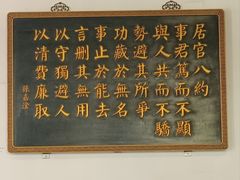 居官八約
事君篤而不顯
與人共而不驕
勢避其所爭
功藏於無名
事止於能去
言刪其無用
以守獨避人
以清費廉取
孫嘉淦